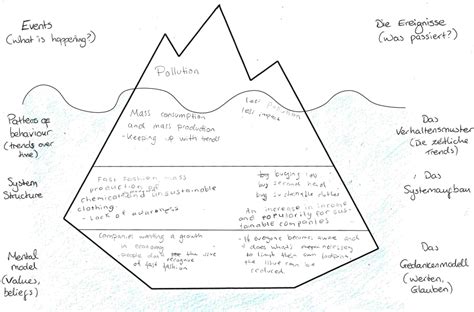 Events
(What is happening?)
Die Ereignisse
(Was passiert?)
Pollution
Patterns of
behaviour
(trends over
time)
Mass consumption
and mass production
- Keeping up with trends
Less
less impact
Das
Verhaltensmuster
(Die zeitliche
Trends)
System
Structure
Fast fashion mass
production of
chemical and unsustainable
clothing.
- Lack of awareness
- by buying
- by second hand
- by sustainable
An increase in income
and popularity for sus-
tainable companies
Das
Systemaufbau
Mental
model
(Values,
beliefs)
Companies wanting a growth
in economy
- people don't see the issue
of fast fashion
- If everyone becomes aware and
does what's necessary
to limit their own footprint,
the issue can be
reduced.
Das
Gedankenmodell
(Werten,
Glauben)